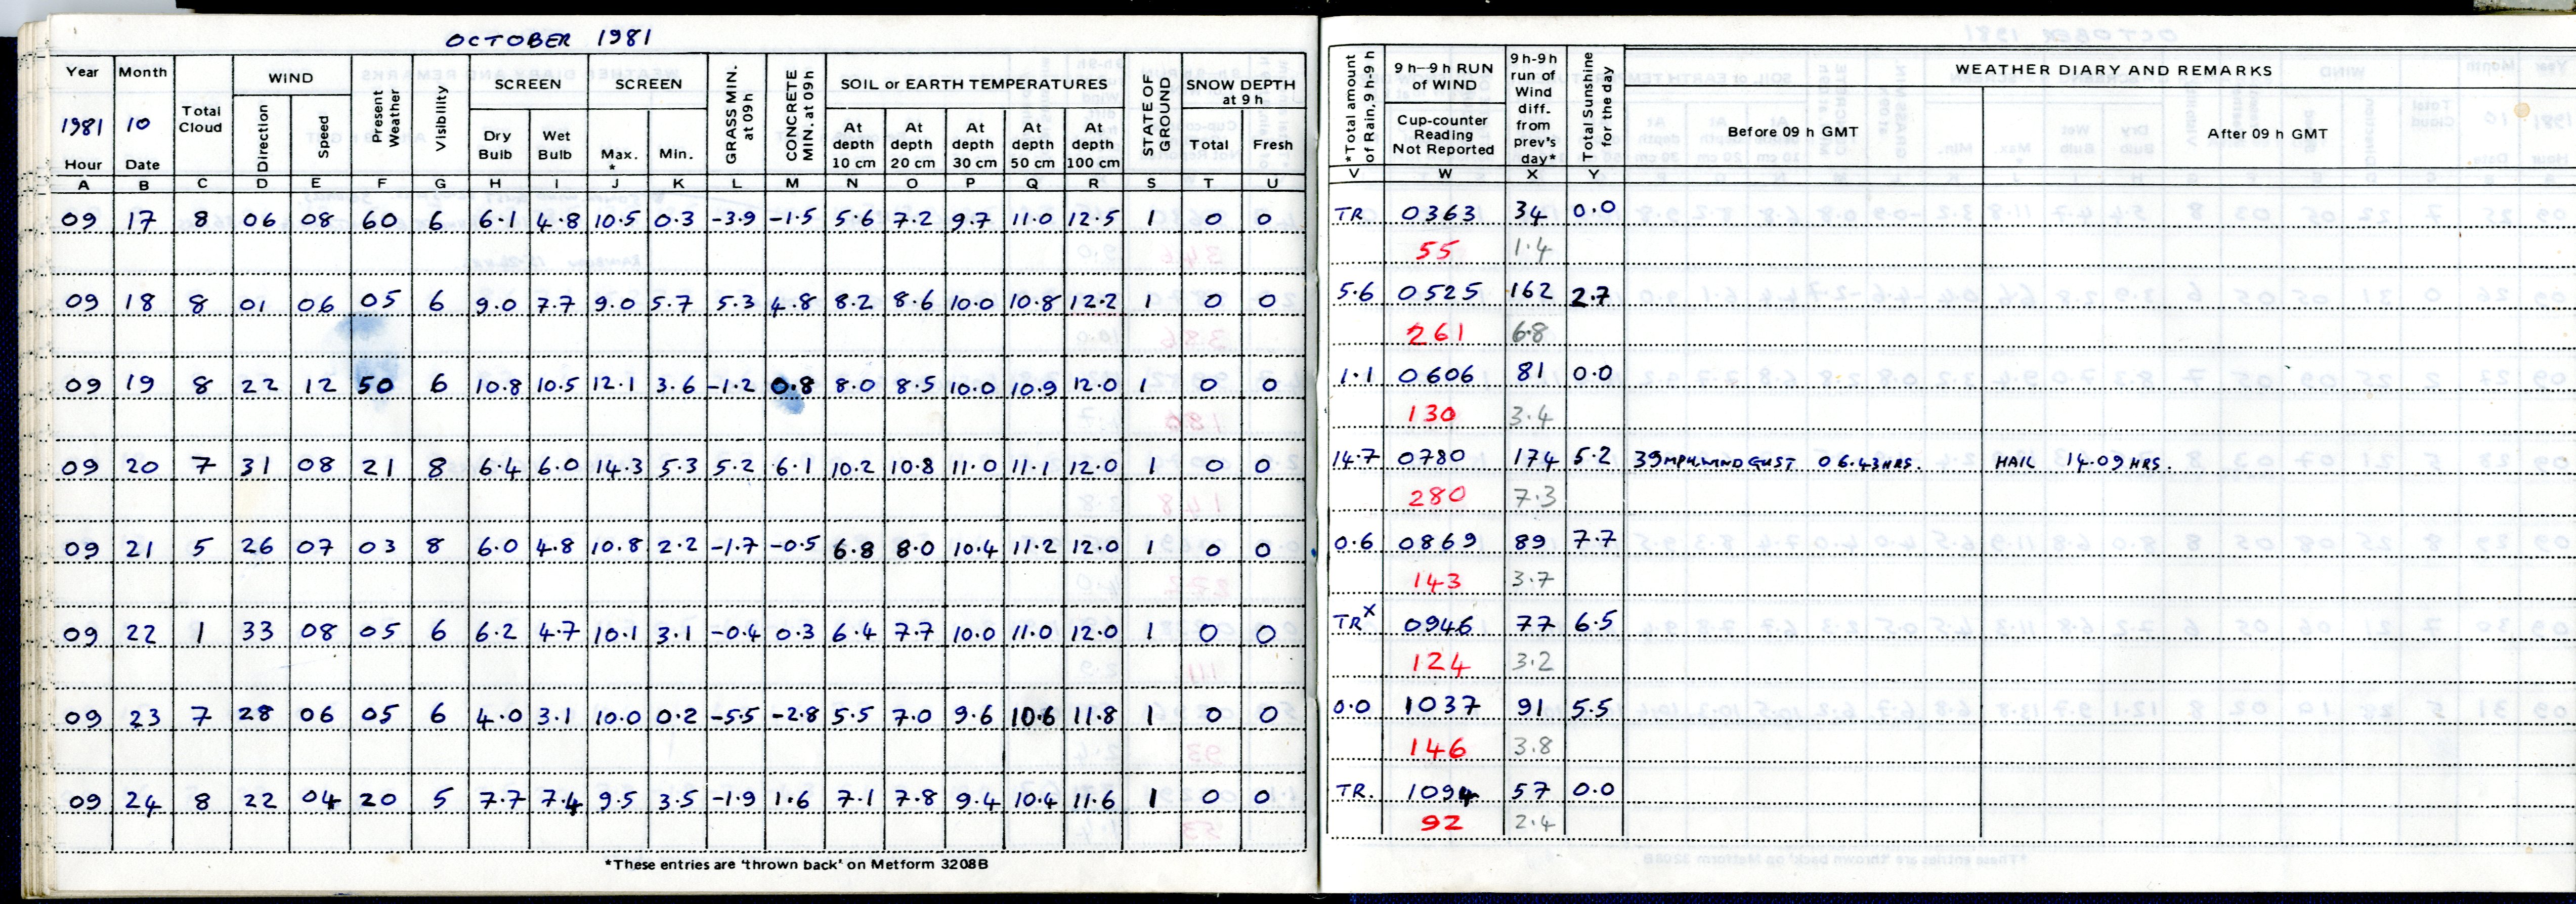 OCTOBER 1981
Year Month Total Cloud WIND Present Weather Visibility SCREEN SCREEN GRASS MIN. at 09 h CONCRETE MIN. at 09 h SOIL or EARTH TEMPERATURES STATE OF GROUND SNOW DEPTH at 9 h *Total amount of Rain, 9 h-9 h 9 h—9 h RUN of WIND 9 h-9 h run of Wind diff. from prev's day* Total Sunshine for the day WEATHER DIARY AND REMARKS
1981 10 Direction Speed Dry Bulb Wet Bulb Max. * Min. At depth 10 cm At depth 20 cm At depth 30 cm At depth 50 cm At depth 100 cm Total Fresh Cup-counter Reading Not Reported Before 09 h GMT After 09 h GMT
Hour Date
A B C D E F G H I J K L M N O P Q R S T U V W X Y
09 17 8 06 08 60 6 6.1 4.8 10.5 0.3 -3.9 -1.5 5.6 7.2 9.7 11.0 12.5 1 0 0 TR. 0363 34 0.0
55 1.4
09 18 8 01 06 05 6 9.0 7.7 9.0 5.7 5.3 4.8 8.2 8.6 10.0 10.8 12.2 1 0 0 5.6 0525 162 2.7
261 6.8
09 19 8 22 12 50 6 10.8 10.5 12.1 3.6 -1.2 0.8 8.0 8.5 10.0 10.9 12.0 1 0 0 1.1 0606 81 0.0
130 3.4
09 20 7 31 08 21 8 6.4 6.0 14.3 5.3 5.2 6.1 10.2 10.8 11.0 11.1 12.0 1 0 0 14.7 0780 174 5.2 39MPH.WIND GUST 06.43HRS. HAIL 14.09HRS.
280 7.3
09 21 5 26 07 03 8 6.0 4.8 10.8 2.2 -1.7 -0.5 6.8 8.0 10.4 11.2 12.0 1 0 0 0.6 0869 89 7.7
143 3.7
09 22 1 33 08 05 6 6.2 4.7 10.1 3.1 -0.4 0.3 6.4 7.7 10.0 11.0 12.0 1 0 0 TR X 0946 77 6.5
124 3.2
09 23 7 28 06 05 6 4.0 3.1 10.0 0.2 -5.5 -2.8 5.5 7.0 9.6 10.6 11.8 1 0 0 0.0 1037 91 5.5
146 3.8
09 24 8 22 04 20 5 7.7 7.4 9.5 3.5 -1.9 1.6 7.1 7.8 9.4 10.4 11.6 1 0 0 TR. 1094 57 0.0
92 2.4
*These entries are 'thrown back' on Metform 3208B